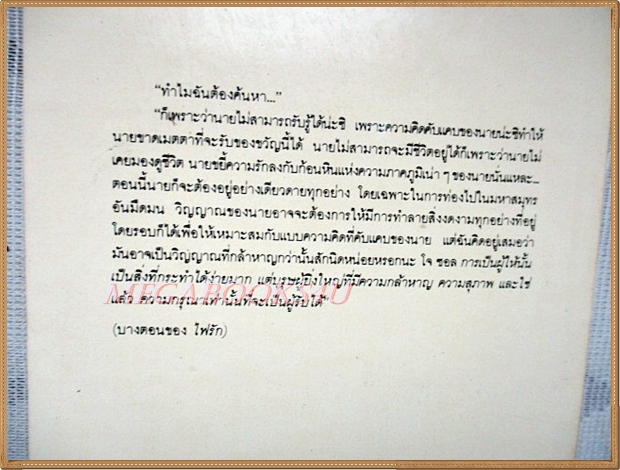 “ทำไมฉันต้องค้นหา...”
“ก็เพราะว่านายไม่สามารถรับรู้ได้น่ะซิ เพราะความคิดคับแคบของนายน่ะซิทำให้
นายขาดเมตตาที่จะรับของขวัญนี้ได้ นายไม่สามารถจะมีชีวิตอยู่ได้ก็เพราะว่านายไม่
เคยมองดูชีวิต นายขยี้ความรักลงกับก้อนหินแห่งความภาคภูมิเน่า ๆ ของนายนั่นแหละ...
ตอนนี้นายก็จะต้องอยู่อย่างเดียวดายทุกอย่าง โดยเฉพาะในการท่องไปในมหาสมุทร
อันมืดมน วิญญาณของนายอาจจะต้องการให้มีการทำลายสิ่งงดงามทุกอย่างที่อยู่
โดยรอบก็ได้เพื่อให้เหมาะสมกับแบบความคิดที่คับแคบของนาย แต่ฉันคิดอยู่เสมอว่า
มันอาจเป็นวิญญาณที่กล้าหาญกว่านั้นสักนิดหน่อยหรอกนะ ใจ ซอล การเป็นผู้ให้นั้น
เป็นสิ่งที่กระทำได้ง่ายมาก แต่บุรุษผู้ยิ่งใหญ่ที่มีความกล้าหาญ ความสุภาพ และใช่
แล้ว ความกรุณาเท่านั้นที่จะเป็นผู้รับได้”
MEGABOOKS4U
(บางตอนของ ไฟรัก)